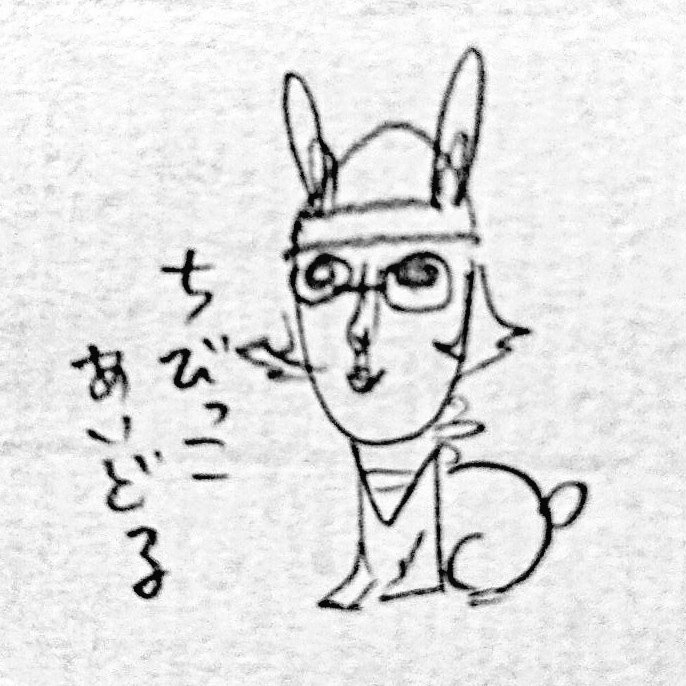 ちびっこ
あいどる